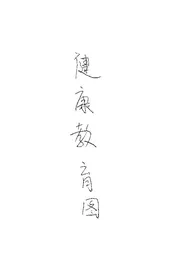 健康教育图